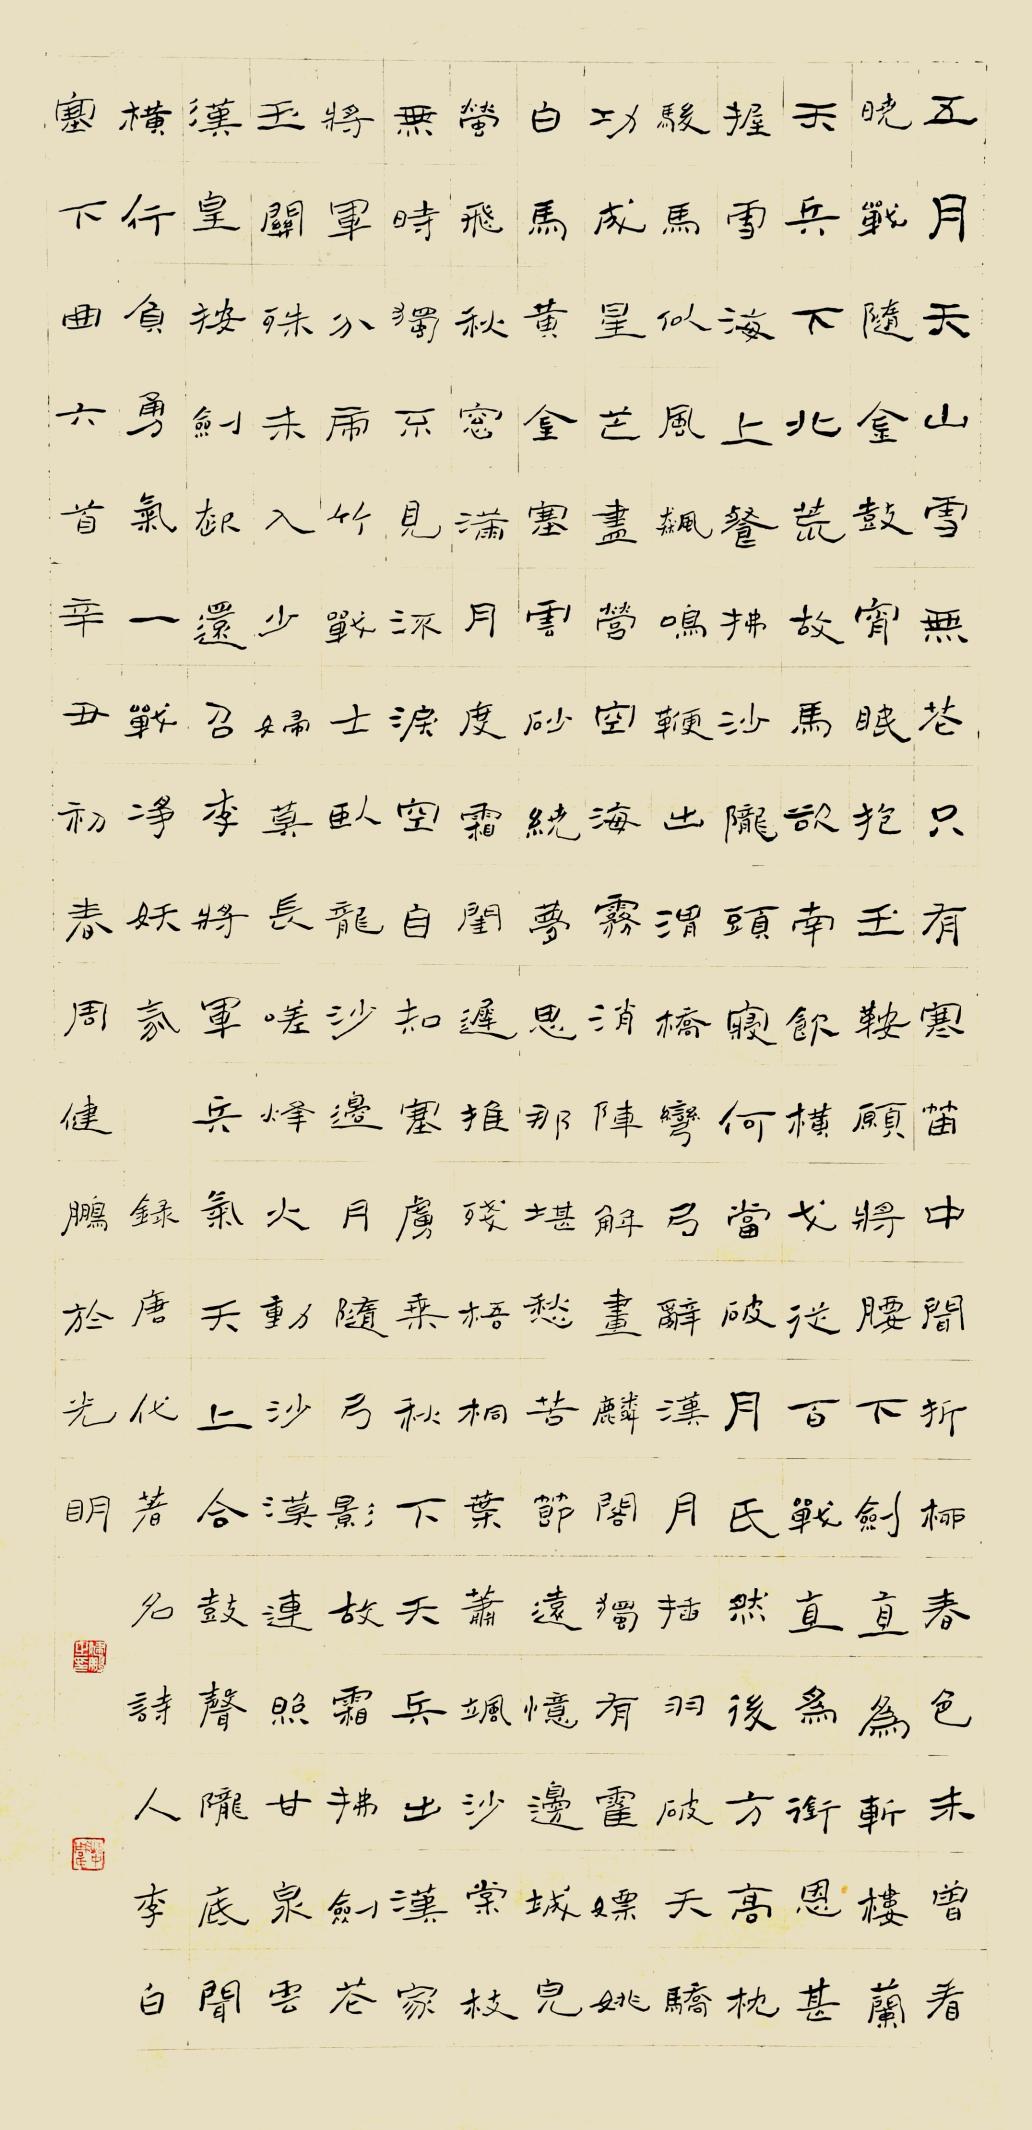 五月天山雪無花只有寒笛中聞折柳春色未曾看
曉戰隨金鼓宵眠抱玉鞍願將腰下劍直為斬樓蘭
天兵下北荒故馬欲南飲橫戈從百戰直為銜恩甚
握雪海上餐拂沙隴頭寢何當破月氏然後方高枕
駿馬似風飆鳴鞭出渭橋彎弓辭漢月插羽破天驕
功成星芒盡營空海霧消陣解畫麟閣獨有霍嫖姚
白馬黃金塞雲砂繞夢思那堪愁苦節遠憶邊城兒
螢飛秋窓滿月度霜閨遲摧殘梧桐葉蕭颯沙棠枝
無時獨不見流淚空自知塞虜乘秋下天兵出漢家
將軍分虎竹戰士臥龍沙邊月隨弓影故霜拂劍花
玉關殊未入少婦莫長嗟烽火動沙漠連照甘泉雲
漢皇按劍起還召李將軍兵氣天上合鼓聲隴底聞
橫行負勇氣一戰淨妖氛 錄唐代著名詩人李白
塞下曲六首辛丑初春周健鵬於光明